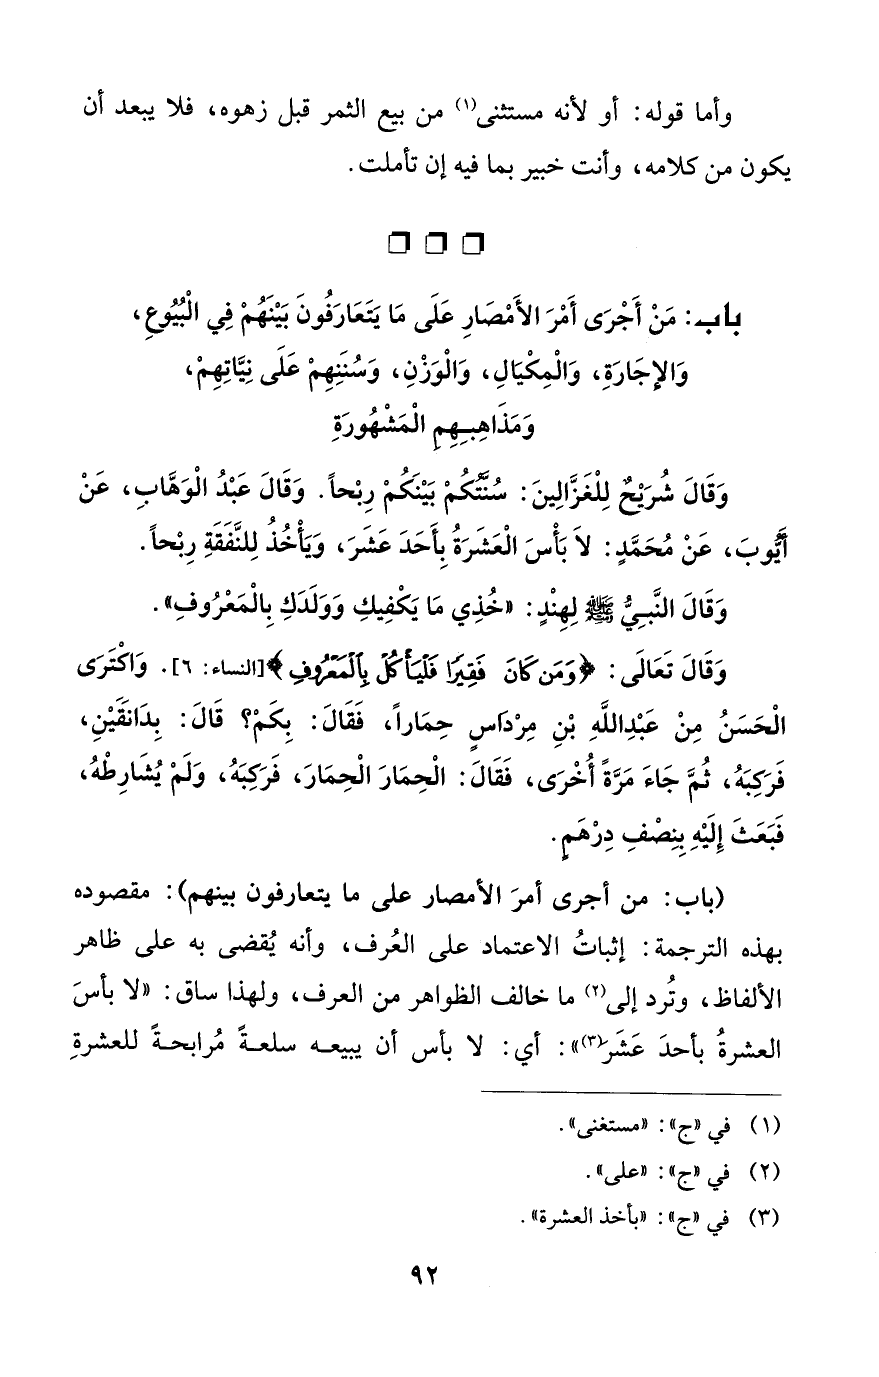 وأما قوله: أو لأنه مستثنى(١) من بيع الثمر قبل زهوه، فلا يبعد أن
يكون من كلامه، وأنت خبير بما فيه إن تأملت.
❒ ❒ ❒
باب: مَنْ أَجْرَى أَمْرَ الأَمْصَارِ عَلَى مَا يَتَعَارَفُونَ بَيْنَهُمْ فِي الْبُيُوعِ،
وَالإِجَارَةِ، وَالْمِكْيَالِ، وَالْوَزْنِ، وَسُنَنِهِمْ عَلَى نِيَّاتِهِمْ،
وَمَذَاهِبِهِمِ الْمَشْهُورَةِ
وَقَالَ شُرَيْحٌ لِلْغَزَّالِينَ: سُنَّتُكُمْ بَيْنَكُمْ رِبْحاً. وَقَالَ عَبْدُ الْوَهَّابِ، عَنْ
أَيُّوبَ، عَنْ مُحَمَّدٍ: لاَ بَأْسَ الْعَشَرَةُ بِأَحَدَ عَشَرَ، وَيَأْخُذُ لِلنَّفَقَةِ رِبْحاً.
وَقَالَ النَّبِيُّ ﷺ لِهِنْدٍ: «خُذِي مَا يَكْفِيكِ وَوَلَدَكِ بِالْمَعْرُوفِ».
وَقَالَ تَعَالَى: ﴿وَمَن كَانَ فَقِيرًا فَلْيَأْكُلْ بِالْمَعْرُوفِ﴾[النساء: ٦]. وَاكْتَرَى
الْحَسَنُ مِنْ عَبْدِاللَّهِ بْنِ مِرْدَاسٍ حِمَاراً، فَقَالَ: بِكَمْ؟ قَالَ: بِدَانَقَيْنِ،
فَرَكِبَهُ، ثُمَّ جَاءَ مَرَّةً أُخْرَى، فَقَالَ: الْحِمَارَ الْحِمَارَ، فَرَكِبَهُ، وَلَمْ يُشَارِطْهُ،
فَبَعَثَ إِلَيْهِ بِنِصْفِ دِرْهَمٍ.
(باب: من أجرى أمرَ الأمصار على ما يتعارفون بينهم): مقصوده
بهذه الترجمة: إثباتُ الاعتماد على العُرف، وأنه يُقضى به على ظاهر
الألفاظ، وتُرد إلى(٢) ما خالف الظواهر من العرف، ولهذا ساق: «لا بأسَ
العشرةُ بأحدَ عَشَرَ(٣)»: أي: لا بأس أن يبيعه سلعةً مُرابحةً للعشرةِ
(١) في «ج»: «مستغنى».
(٢) في «ج»: «على».
(٣) في «ج»: «بأخذ العشرة».
٩٢